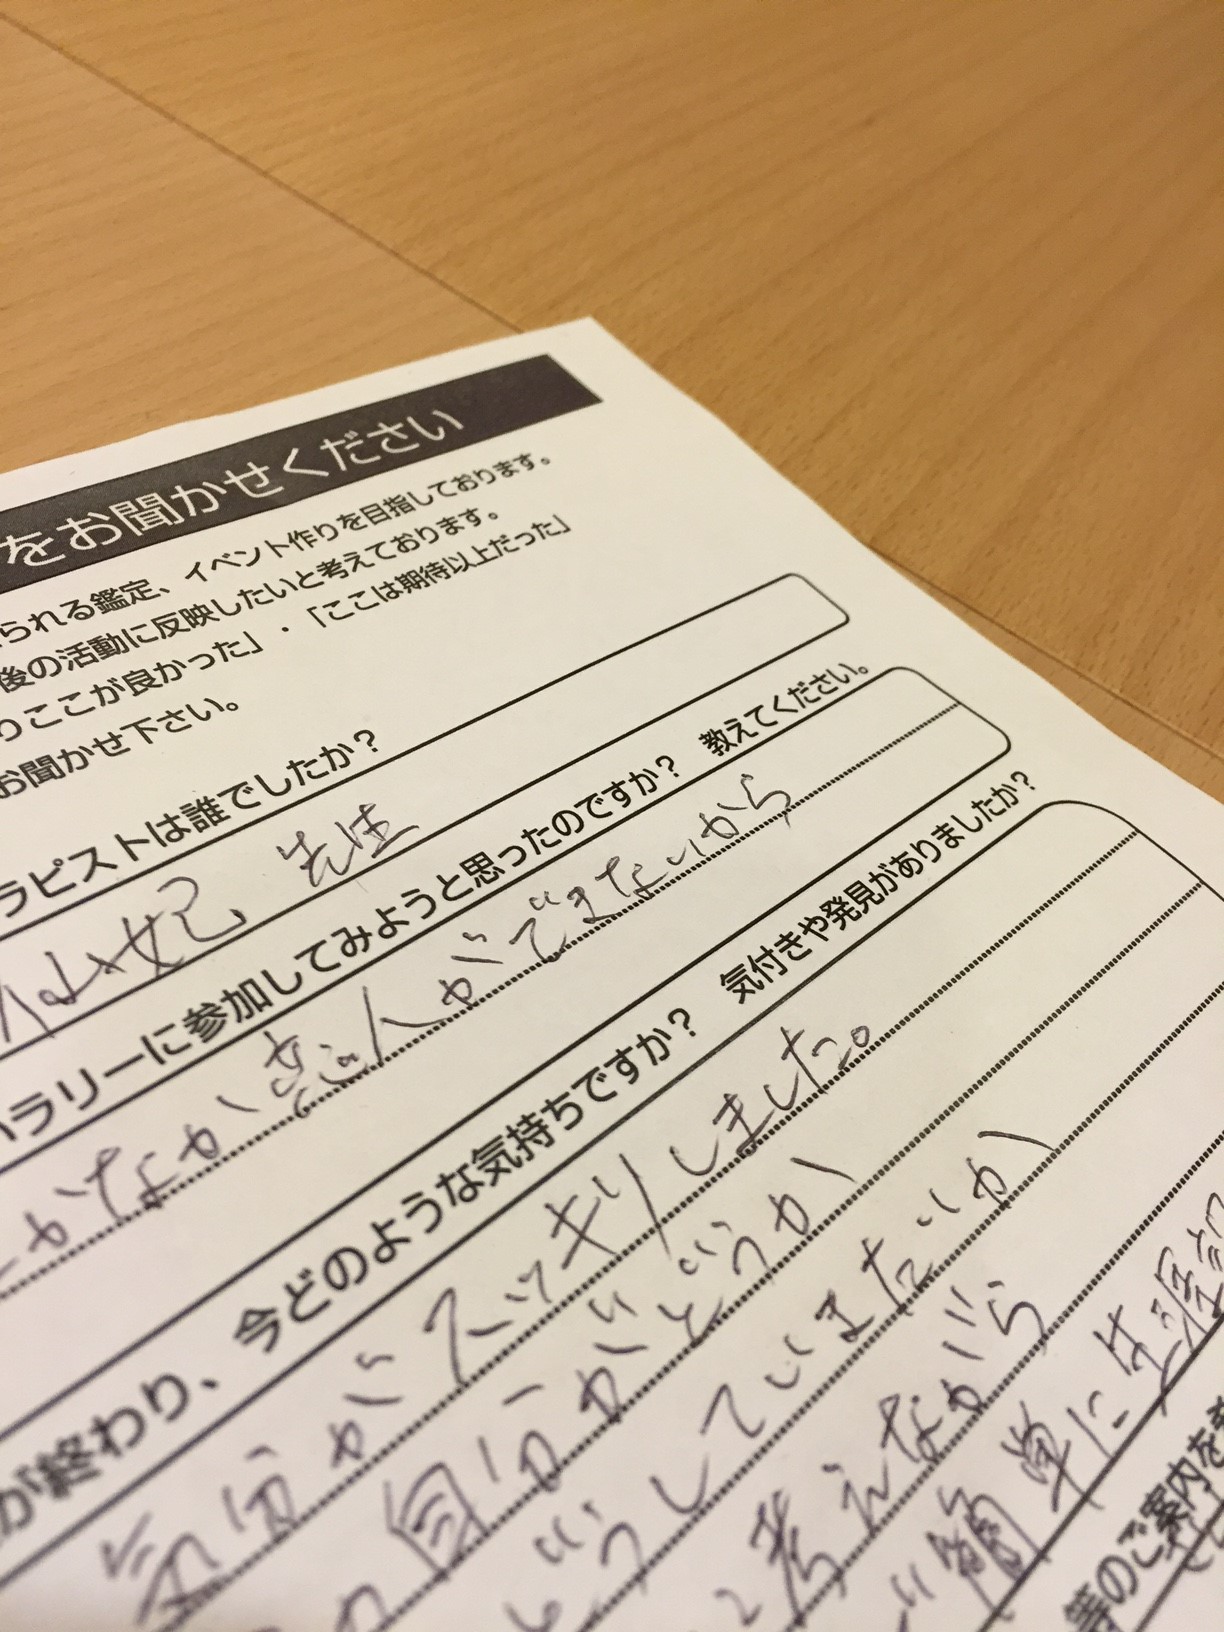 をお聞かせください
られる鑑定、イベント作りを目指しております。
後の活動に反映したいと考えております。
りここが良かった」・「ここは期待以上だった」
お聞かせ下さい。
ラピストは誰でしたか？
妃 先生
ラリーに参加してみようと思ったのですか？ 教えてください。
なかなか恋人ができないから
が終わり、今どのような気持ちですか？ 気付きや発見がありましたか？
気分がスッキリしました。
自分がどうか
どうしていきたいか
考えながら
簡単に生涯
等のご案内を